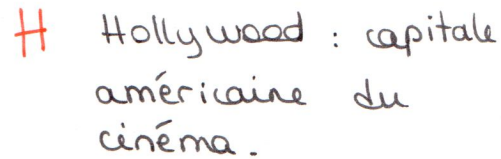 H Hollywood : capitale
américaine du
cinéma.